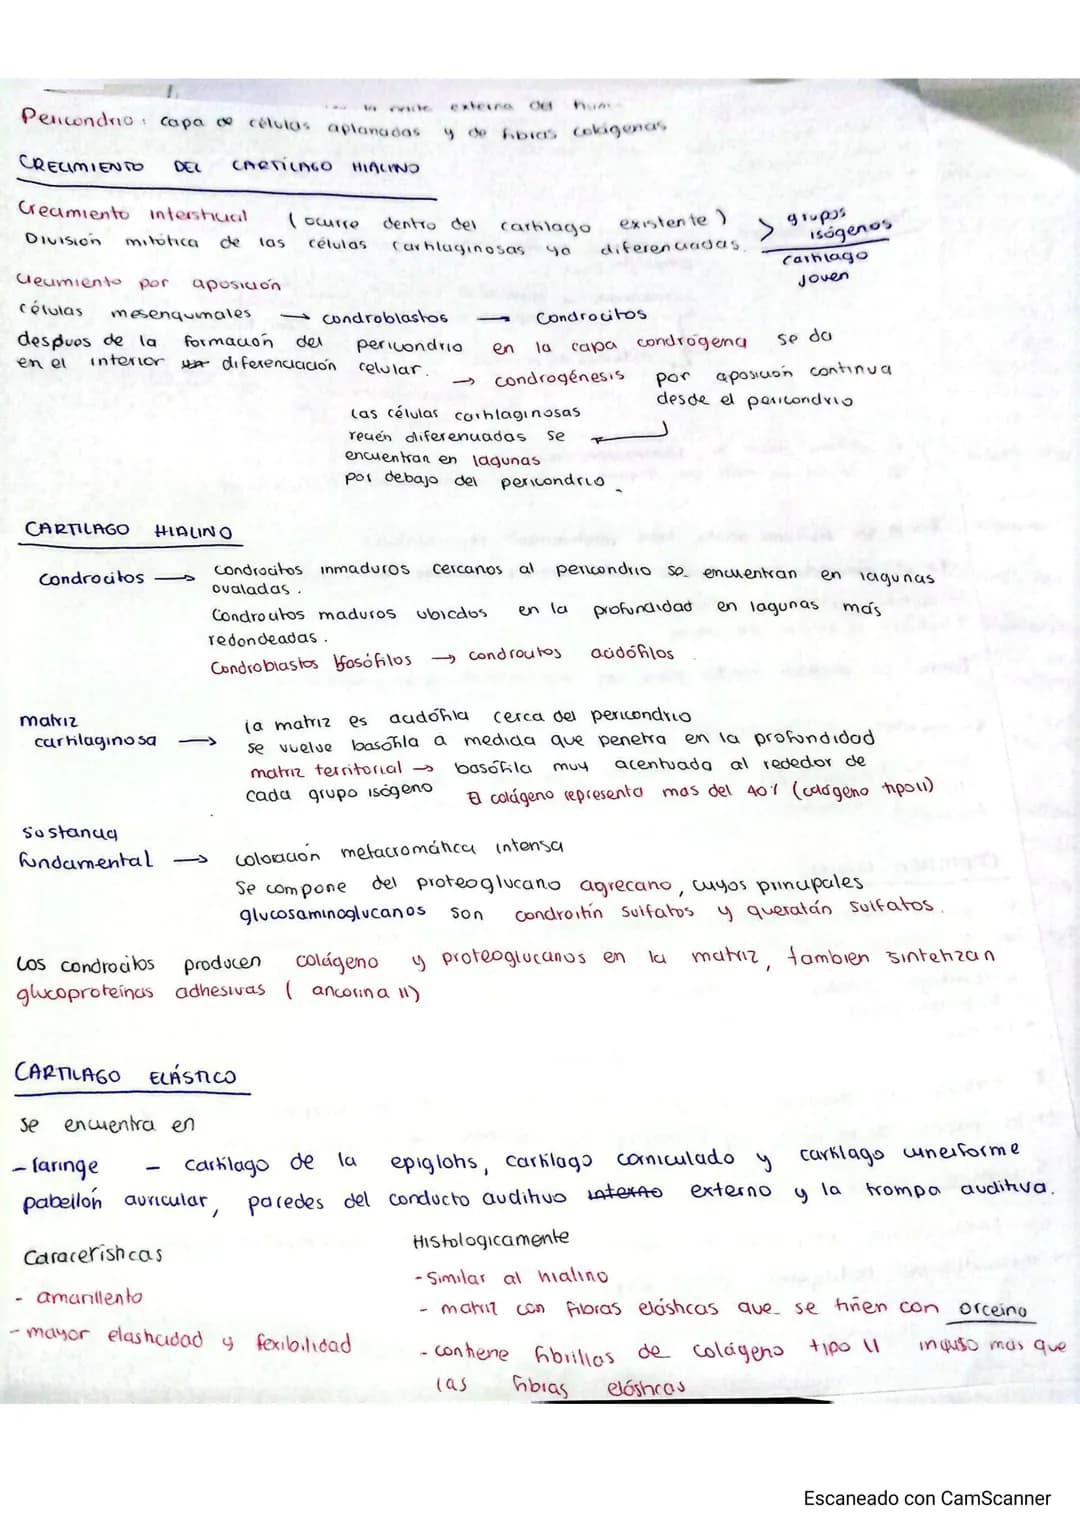 externa del
Pericondrio: capa de células aplanadas y de fibras colágenas
CRECIMIENTO DEL CARTÍLAGO HIALINO
Crecimiento intersticial (ocurre dentro del cartilago existente)
División mitótica de las células cartilaginosas ya diferenciadas.
> grupos isógenos
cartilago joven
Crecimiento por aposición
células mesenquimales → condroblastos → Condrocitos
despues de la formación del pericondrio en la capa condrógena se da
en el interior diferenciación celular.
→ condrogénesis por aposición continua
desde el pericondrio
Las células cartilaginosas
recién diferenciadas se
encuentran en lagunas
por debajo del pericondrio.
CARTILAGO HIALINO
Condrocitos → Condrocitos inmaduros cercanos al pericondrio se encuentran en lagunas
ovaladas.
Condrocitos maduros ubicdos en la profundidad en lagunas más
redondeadas.
Condroblastos basófilos → condrocitos acidófilos
matriz
cartilaginosa → la matriz es acidófila cerca del pericondrio
se vuelve basófila a medida que penetra en la profundidad
matriz territorial → basófila muy acentuada al rededor de
cada grupo isógeno El colágeno representa mas del 40% (colágeno tipo II)
Sustancia
fundamental → coloración metacromática intensa
Se compone del proteoglucano agrecano, cuyos principales
glucosaminoglucanos son condroitín sulfatos y queratán sulfatos.
Los condrocitos producen colágeno y proteoglucanos en la matriz, tambien sintetizan
glucoproteínas adhesivas (ancorina II)
CARTILAGO ELÁSTICO
Se encuentra en
- laringe - cartílago de la epiglotis, cartílago corniculado y cartílago cuneiforme
pabellón auricular, paredes del conducto auditivo interno externo y la trompa auditiva.
Caracerísticas
- amarillento
- mayor elasticidad y fexibilidad
Histologicamente
- Similar al hialino
- matriz con fibras elásticas que se tiñen con orceína
- contiene fibrillas de colágeno tipo II incluso más que
las fibras elásticas
Escaneado con CamScanner